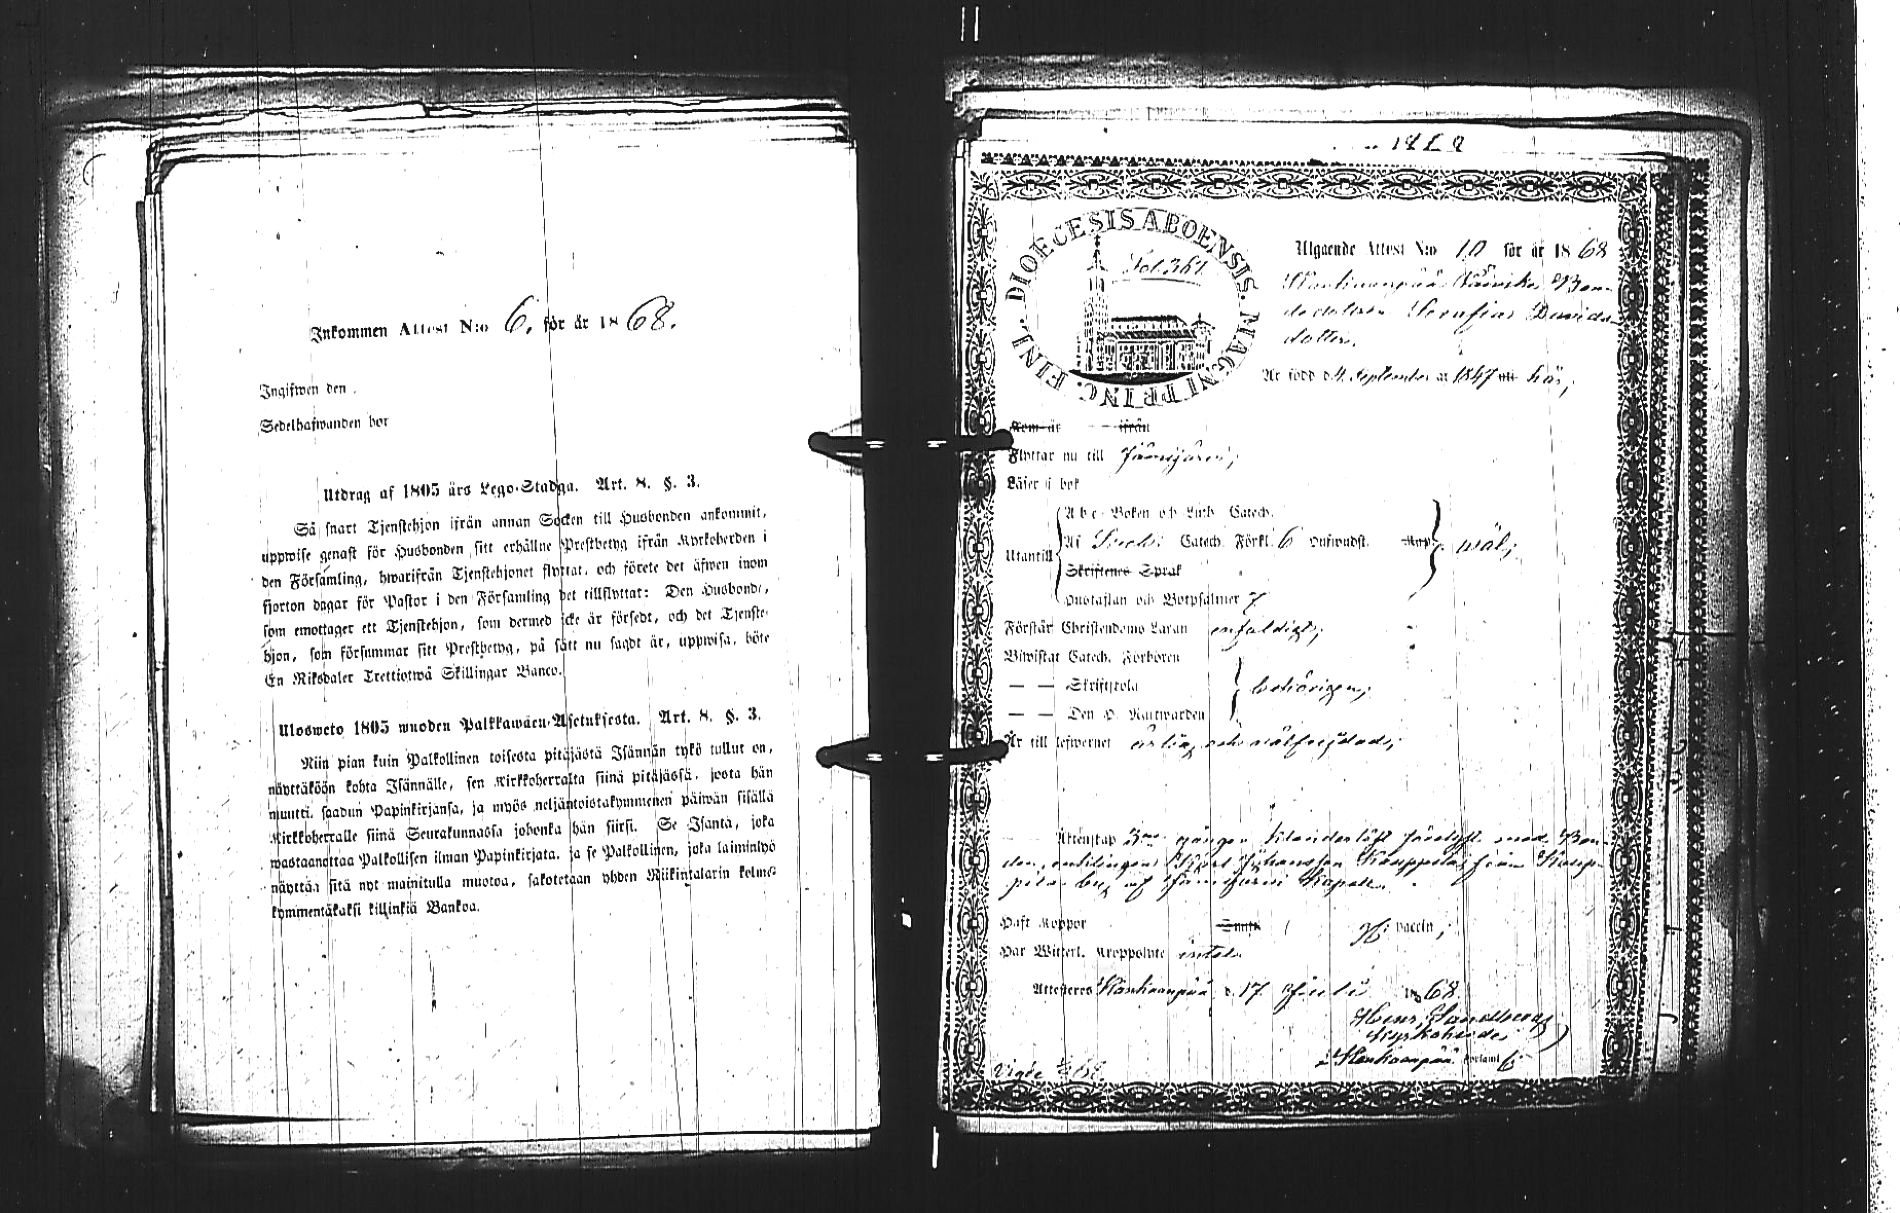 Inkommen Attest N:o 6, för år 1868.
Ingifwen den
Sedelhafwanden bor
Utdrag af 1805 års Lego-Stadga. Art. 8. §. 3.
Så snart Tjenstehjon ifrån annan Socken till Husbonden ankommit,
uppwise genast för Husbonden sitt erhållne Prestbetyg ifrån Kyrkoherden i
den Församling, hwarifrån Tjenstehjonet flyttat, och förete det äfwen inom
fjorton dagar för Pastor i den Församling det tillflyttat: Den Husbonde,
som emottager ett Tjenstehjon, som dermed icke är försedt, och det Tjenste-
hjon, som försummar sitt Prestbetyg, på sätt nu sagdt är, uppwisa, böte
En Riksdaler Trettiotwå Skillingar Banco.
Ulosweto 1805 wuoden Palkkawäen-Asetuksesta. Art. 8. §. 3.
Niin pian kuin Palkollinen toisesta pitäjästä Isännän tykö tullut on,
näyttäköön kohta Isännälle, sen Kirkkoherralta siinä pitäjässä, josta hän
muutti, saadun Papinkirjansa, ja myös neljäntoistakymmenen päiwän sisällä
Kirkkoherralle siinä Seurakunnassa johonka hän siirsi. Se Isäntä, joka
wastaanottaa Palkollisen ilman Papinkirjata, ja se Palkollinen, joka laiminlyö
näyttää sitä nyt mainitulla muotoa, sakotetaan yhden Riikintalarin kolme-
kymmentäkaksi killinkiä Bankoa.
DIOECESIS ABOENSIS. MAGNI PRINC. FINL.
Fol. 361.
Utgående Attest N:o 10 för år 1868
Kankaanpää Bon-
dedottren Serafia Davids-
dotter,
Är född d 4 September år 1847 här,
Kom år ifrån
Flyttar nu till Jämijärvi,
Läser i bok
Utantill
A b c-Boken och Luth. Catech.
Af Catech. Förkl. 6 Hufwudst. wäl,
Skriftenes Språk
Hustaflan och Botpsalmer 7
Förstår Christendoms Läran enfaldigt,
Biwistat Catech. Förhören
— — Skriftskola behörigen,
— — Den H. Nattwarden
Är till lefwernet ärlig och wälfrejdad,
Äktenskap 3ne gånger klanderlöst före lyst med Bon-
den, enklingen Johansson Kauppila från Kaup-
pila by af Jämijärvi Kapell.
Haft Koppor vaccin,
Har Witterl. Kroppslyte intet.
Attesteras Kankaanpää d. 17 Juli 1868
Sandberg
Kyrkoherde
i Kankaanpää Församl.
Vigde